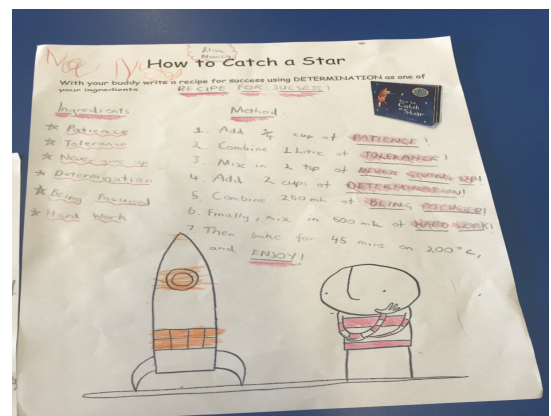 Elisa
Nancy
How to Catch a Star
With your buddy write a recipe for success using DETERMINATION as one of
your ingredients
RECIPE FOR SUCSESS!
Ingredients:
★ Patience
★ Tolerance
★ Never give up
★ Determination
★ Being Focused
★ Hard Work
Method:
1. Add ¾ cup of PATIENCE!
2. Combine 1 litre of TOLERANCE!
3. Mix in 2 tsp of NEVER GIVING UP!
4. Add 2 cups of DETERMINATION!!
5. Combine 250 ml of BEING FOCUSED!
6. Finally, mix in 500 ml of HARD WORK!
7. Then bake for 45 mins on 200°C,
and ENJOY!
How to
Catch
a Star